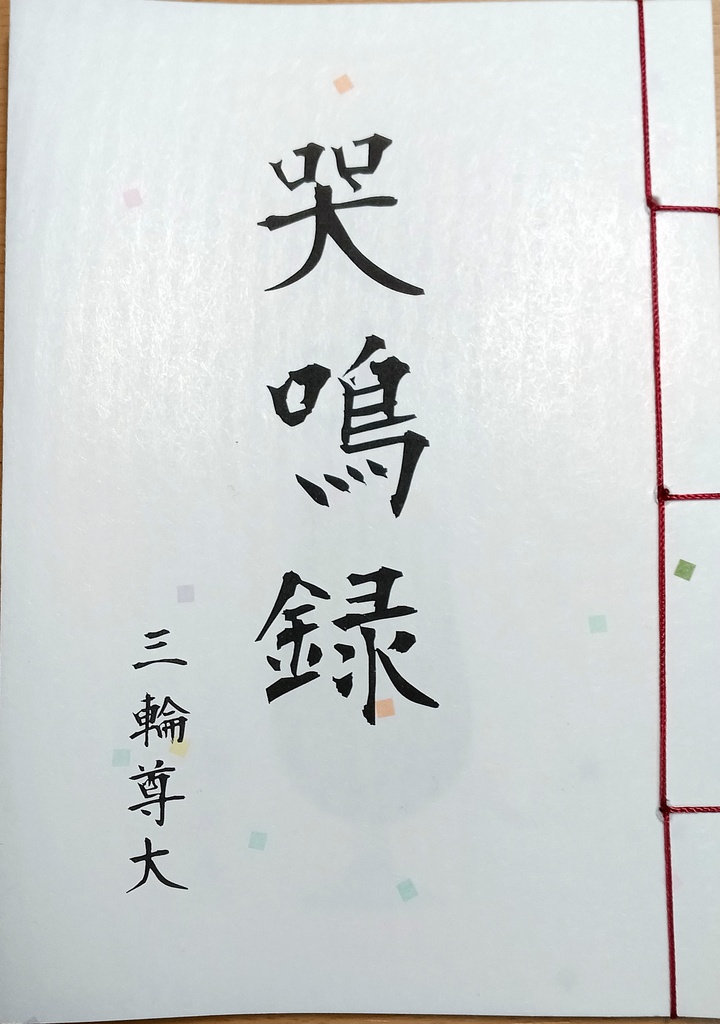 哭鳴録
三輪尊大